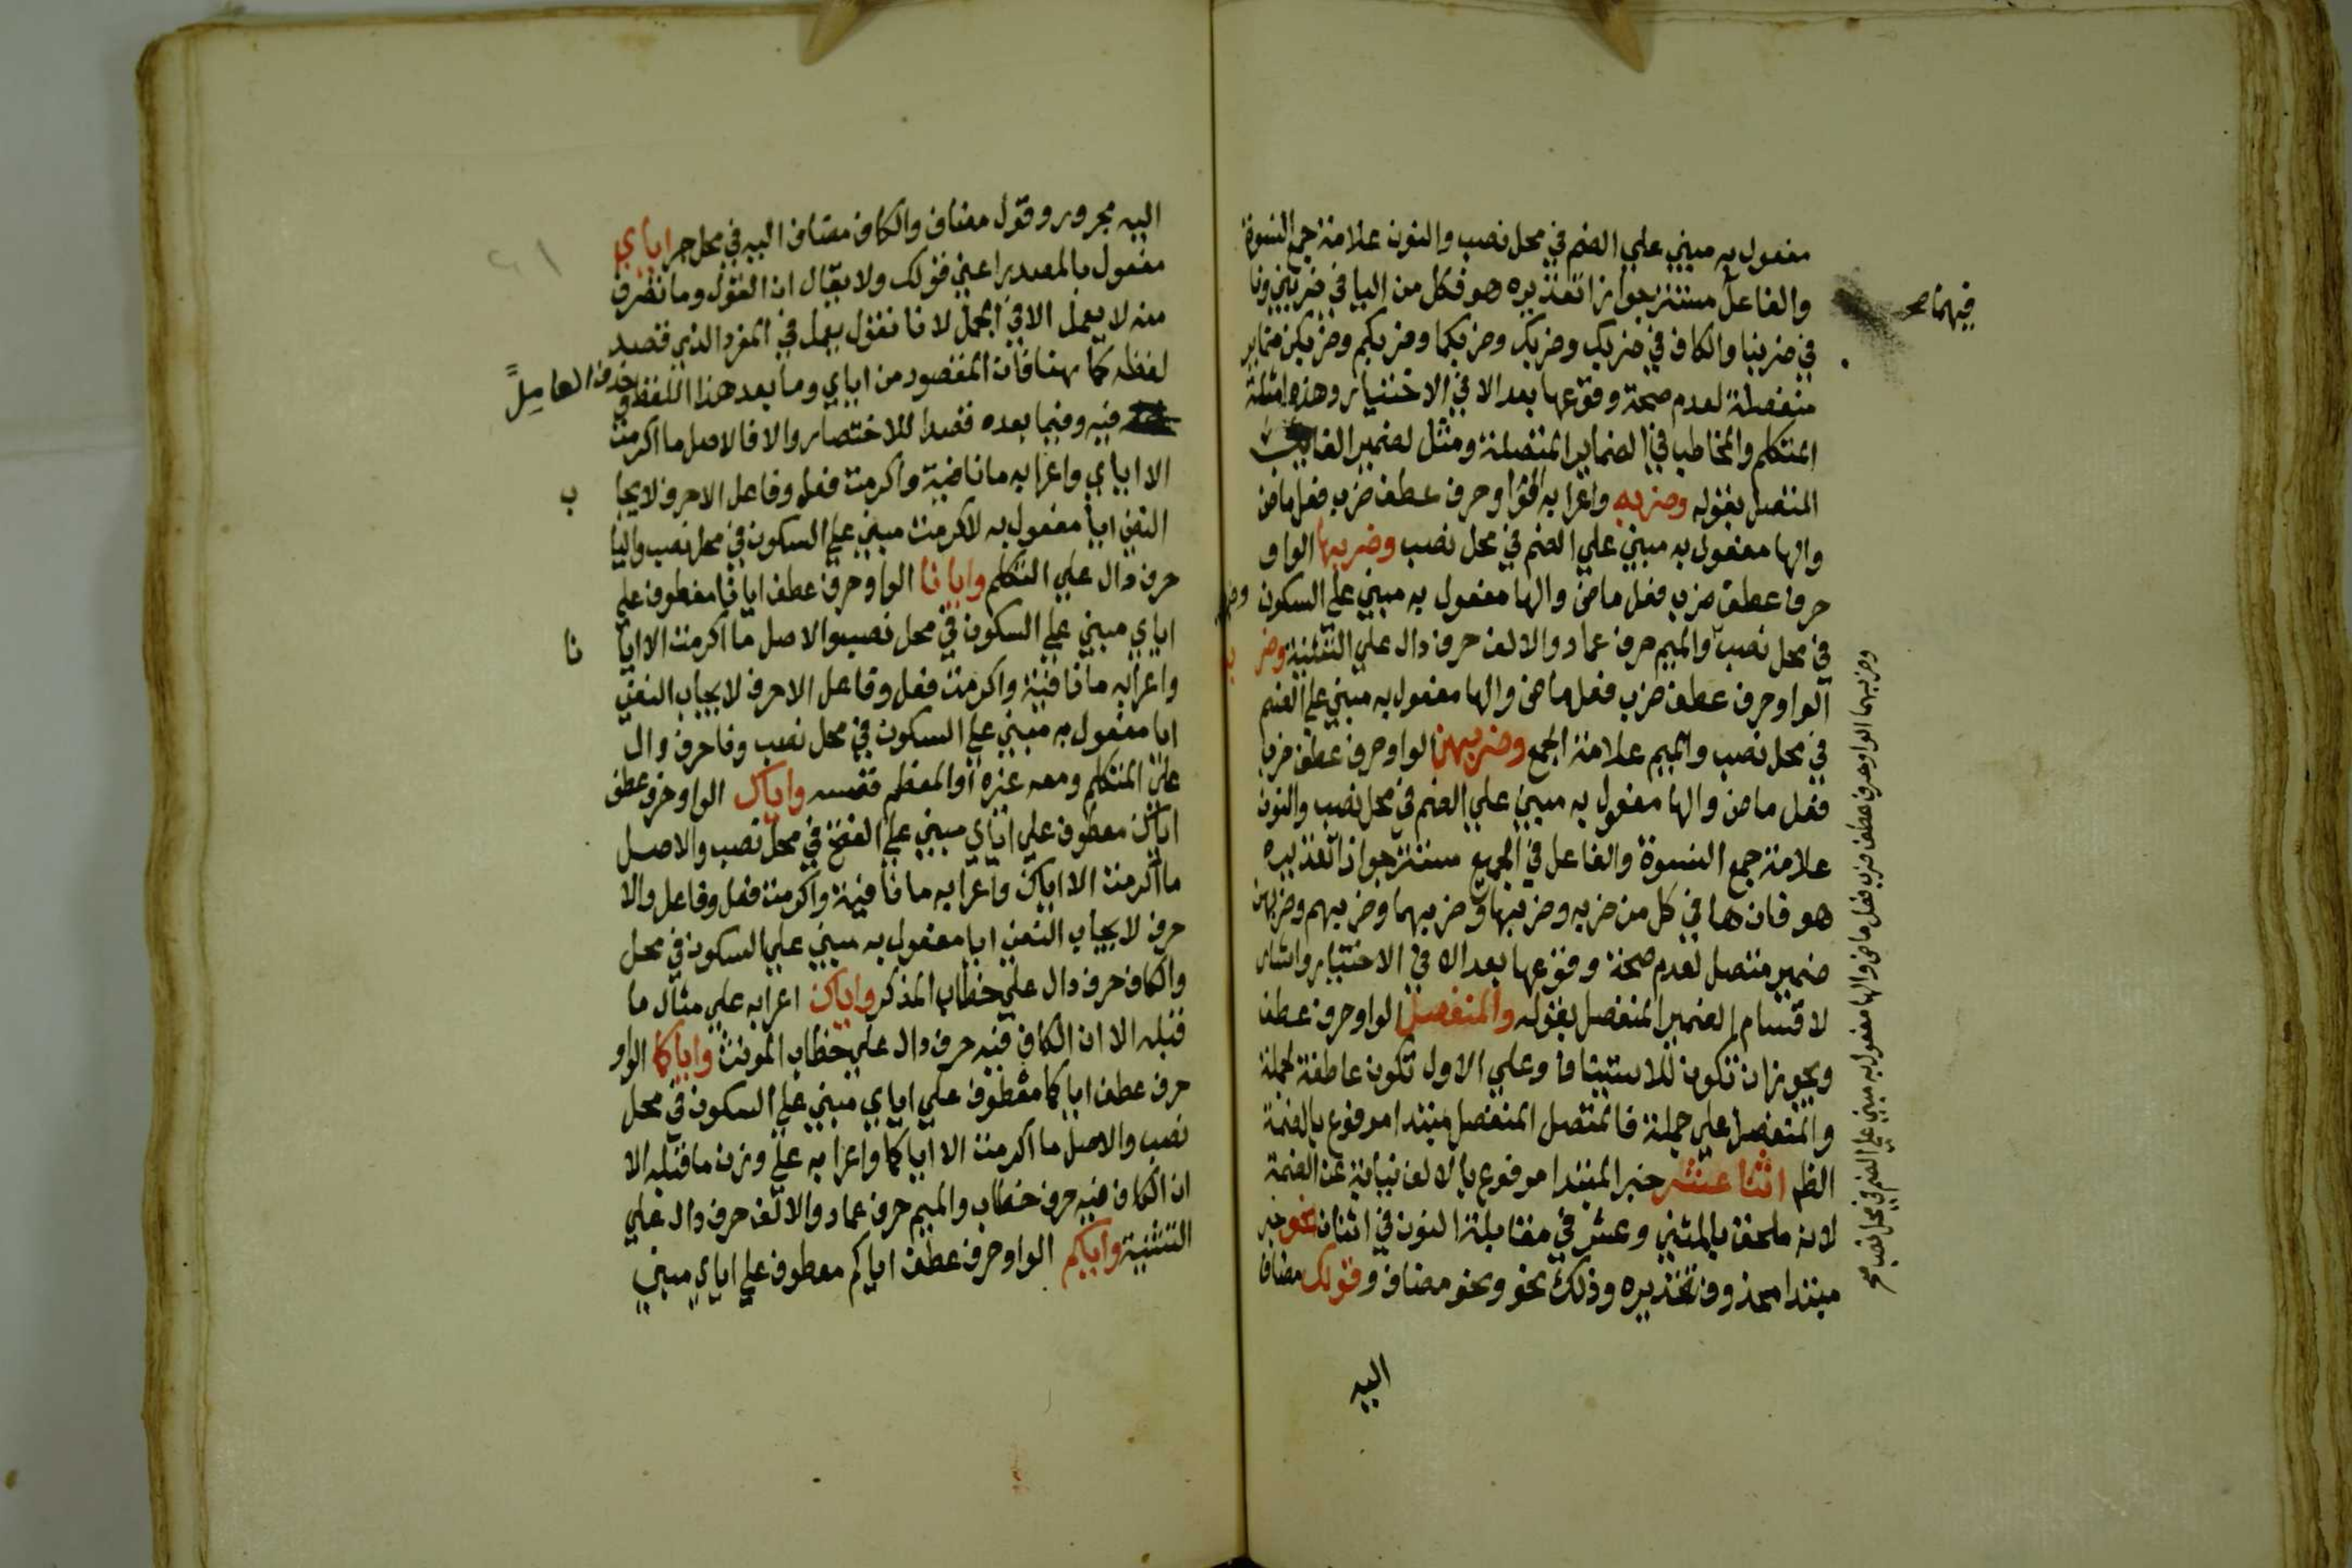 مفعول به مبني علي الضم في محل نصب والنون علامة جمع النسوة
والفاعل مستتر جوازا تقديره هو فكل من اليا في ضربني ونا
فيهما صح
في ضربنا والكاف في ضربك وضربك وضربكما وضربكم وضربكن ضماير
متصلة لعدم صحة وقوعها بعد الا في الاختيار وهذه امثلة
المتكلم والمخاطب في الضماير المتصلة ومثل لضمير الغايب
المتصل بقوله وضربه واعرابه الواو حرف عطف ضرب فعل ماض
والها مفعول به مبني علي الضم في محل نصب وضربها الواو
حرف عطف ضرب فعل ماض والها مفعول به مبني علي السكون
في محل نصب والميم حرف عماد والالف حرف دال علي التثنية وضر
الواو حرف عطف ضرب فعل ماض والها مفعول به مبني علي الضم
في محل نصب والميم علامة الجمع وضربهن الواو حرف عطف ضرب
فعل ماض والها مفعول به مبني علي الضم في محل نصب والنون
علامة جمع النسوة والفاعل في الجميع مستتر جوازا تقديره
هو فان ها في كل من ضربه وضربها وضربهما وضربهم وضربهن
ضمير متصل لعدم صحة وقوعها بعد الا في الاختيار واشار
لاقسام الضمير المنفصل بقوله والمنفصل الواو حرف عطف
ويجوز ان تكون للاستيناف وعلي الاول تكون عاطفة لجملة
والمنفصل علي جملة فالمتصل المنفصل مبتدا مرفوع بالضمة
الظم اثنا عشر خبر المبتدا مرفوع بالالف نيابة عن الضمة
لانه ملحق بالمثني وعشر في مقابلة النون في اثنان نحو خبر
مبتدا محذوف تقديره وذلك نحو ونحو مضاف وقولك مضاف
وضربهما الواو حرف عطف ضرب فعل ماض والها مفعول به مبني علي الضم في محل نصب صح
اليه
اليه مجرور وقول مضاف والكاف مضاف اليه في محل جر اياي
مفعول بالمصدر اعني قولك ولا يقال ان القول وما تصرف
منه لا يعمل الا في الجمل لانا نقول يعمل في المفرد الذي قصد
لفظه كما هنا فان المقصود من اياي وما بعد هذا اللفظ و
حذف العامل
فيه وفيما بعده قصدا للاختصار والا فالاصل ما اكرمت
الا اياي واعرابه ما نافية واكرمت فعل وفاعل الا حرف لايجا
ب
النفي ايا مفعول به لاكرمت مبني علي السكون في محل نصب واليا
حرف دال علي التكلم وايانا الواو حرف عطف ايانا معطوف علي
اياي مبني علي السكون في محل نصب والاصل ما اكرمت الا ايا
نا
واعرابه ما نافية واكرمت فعل وفاعل الا حرف لايجاب النفي
ايا مفعول به مبني علي السكون في محل نصب ونا حرف دال
علي المتكلم ومعه غيره او المعظم نفسه واياك الواو حرف عطف
اياك معطوف علي اياي مبني علي الفتح في محل نصب والاصل
ما اكرمت الا اياك واعرابه ما نافية واكرمت فعل وفاعل والا
حرف لايجاب النفي ايا مفعول به مبني علي السكون في محل
والكاف حرف دال علي خطاب المذكر واياك اعرابه علي مثال ما
قبله الا ان الكاف فيه حرف دال علي خطاب المونث واياكما الواو
حرف عطف اياكما معطوف علي اياي مبني علي السكون في محل
نصب والاصل ما اكرمت الا اياكما واعرابه علي وزن ما قبله الا
ان الكاف فيه حرف خطاب والميم حرف عماد والالف حرف دال علي
التثنية واياكم الواو حرف عطف اياكم معطوف علي اياي مبني